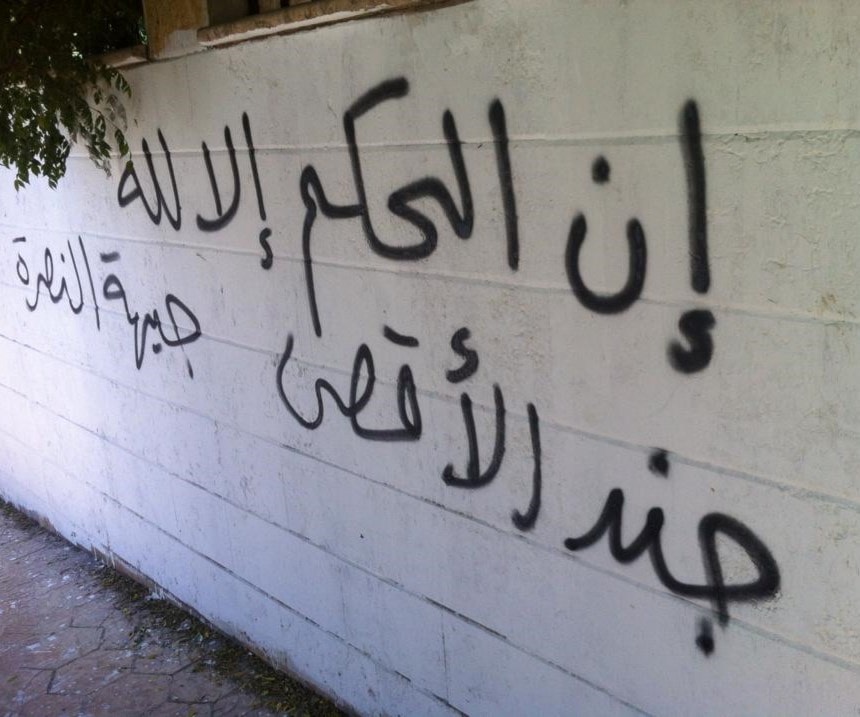 إن الحكم إلا لله
جند الأقصى جبهة النصرة